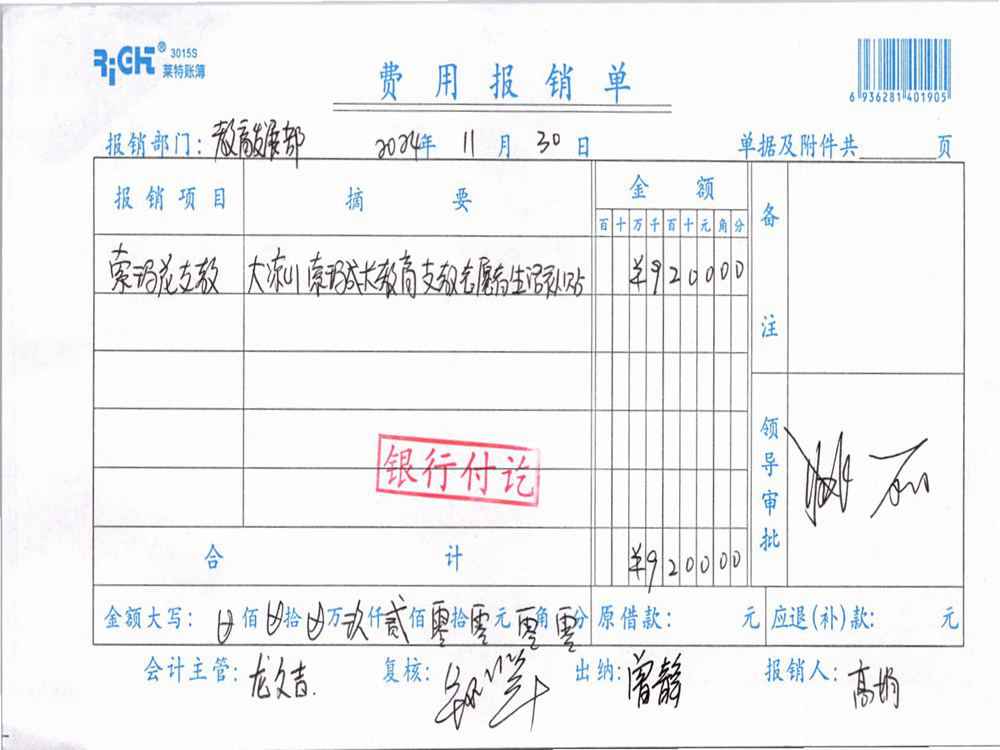 RiCHT® 3015S
莱特账簿
费用报销单
6 936281 401905
报销部门: 教育发展部 2024年 11月 30日 单据及附件共 页
报销项目 摘要 金额 备注
百十万千百十元角分
索玛花支教 大凉山索玛花大教育支教志愿者生活补贴 ¥920000
银行付讫
领导审批
合计 ¥920000
金额大写: 佰 拾 万玖仟贰佰零拾零元零角零分 原借款: 元 应退(补)款: 元
会计主管: 龙文吉. 复核: 出纳: 曾静 报销人: 高娟